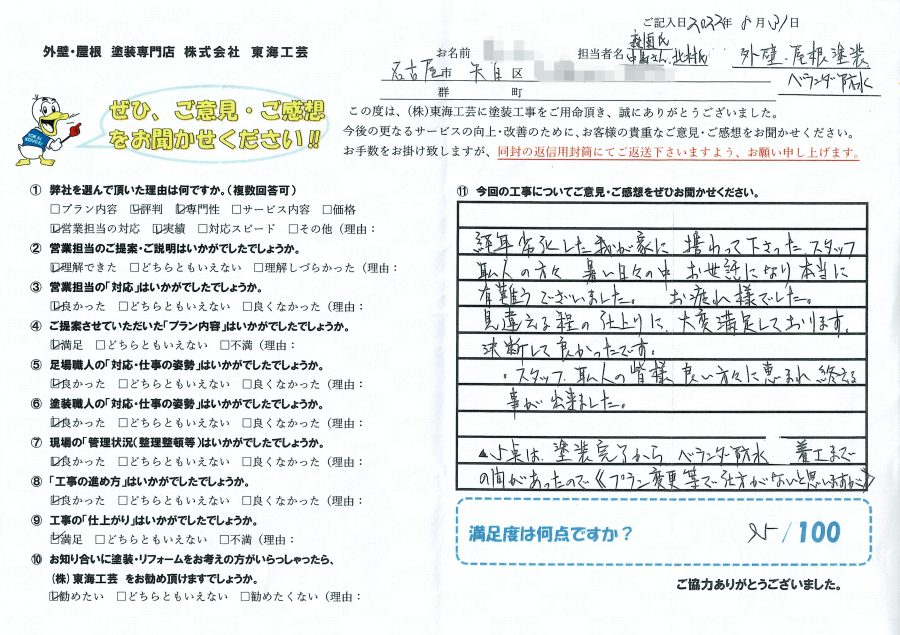 ご記入日2022年8月31日
外壁・屋根 塗装専門店 株式会社 東海工芸
お名前
担当者名 中島さん、北村氏
外壁.屋根塗装
名古屋市 区
ベランダ防水
郡 町
ぜひ、ご意見・ご感想
をお聞かせください!!
この度は、(株)東海工芸に塗装工事をご用命頂き、誠にありがとうございました。
今後の更なるサービスの向上・改善のために、お客様の貴重なご意見・ご感想をお聞かせください。
お手数をお掛け致しますが、同封の返信用封筒にてご返送下さいますよう、お願い申し上げます。
① 弊社を選んで頂いた理由は何ですか。(複数回答可)
□プラン内容 ☑評判 ☑専門性 □サービス内容 □価格
☑営業担当の対応 ☑実績 □対応スピード □その他(理由:
② 営業担当のご提案・ご説明はいかがでしたでしょうか。
☑理解できた □どちらともいえない □理解しづらかった(理由:
③ 営業担当の「対応」はいかがでしたでしょうか。
☑良かった □どちらともいえない □良くなかった(理由:
④ ご提案させていただいた「プラン内容」はいかがでしたでしょうか。
☑満足 □どちらともいえない □不満(理由:
⑤ 足場職人の「対応・仕事の姿勢」はいかがでしたでしょうか。
☑良かった □どちらともいえない □良くなかった(理由:
⑥ 塗装職人の「対応・仕事の姿勢」はいかがでしたでしょうか。
☑良かった □どちらともいえない □良くなかった(理由:
⑦ 現場の「管理状況(整理整頓等)はいかがでしたでしょうか。
☑良かった □どちらともいえない □良くなかった(理由:
⑧ 「工事の進め方」はいかがでしたでしょうか。
☑良かった □どちらともいえない □良くなかった(理由:
⑨ 工事の「仕上がり」はいかがでしたでしょうか。
☑満足 □どちらともいえない □不満(理由:
⑩ お知り合いに塗装・リフォームをお考えの方がいらっしゃったら、
(株)東海工芸 をお勧め頂けますでしょうか。
☑勧めたい □どちらともいえない □勧めたくない(理由:
⑪ 今回の工事についてご意見・ご感想をぜひお聞かせください。
経年劣化した我が家に 携わって下さった スタッフ
職人の方々 暑い日々の中 お世話になり本当に
有難うございました。 お疲れ様でした。
見違える程の仕上りに、大変満足しております。
決断して良かったです。
・スタッフ、職人の皆様 良い方々に恵まれ 終える
事が出来ました。
▲5点は、塗装完了から ベランダ防水 着工まで
の間があったので《プラン変更等で仕方がないと思いますが》
満足度は何点ですか? 95/100
ご協力ありがとうございました。